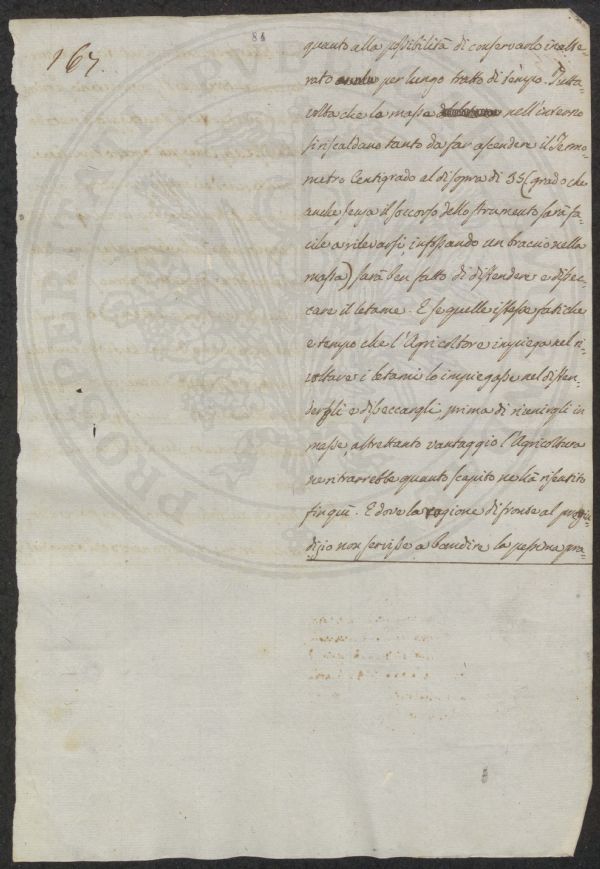 84
167.
quanto alla possibilità di conservarlo inalte-
rato per lungo tratto di tempo. Tutta-
volta che la massa nell'interno
si riscaldano tanto da far ascendere il Termo-
metro Centigrado al disopra di 35 (grado che
anche senza il soccorso dello strumento sarà fa-
cile a rilevarsi, infissando un braccio nella
massa) sarà ben fatto di distendere e disec-
care il letame. E se quelle istesse fatiche
e tempo che l'Agricoltore impiega nel ri-
voltare i letami lo impiegasse nel disten-
dergli e diseccargli, prima di riunirgli in
masse, altrettanto vantaggio l'Agricoltura
ne ritrarrebbe quanto scapito ne hà risentito
fin quì. E dove la ragione di fronte al pregiu-
dizio non servisse a bandire la pessima pra-
PROSPERITATI PUBLICAE